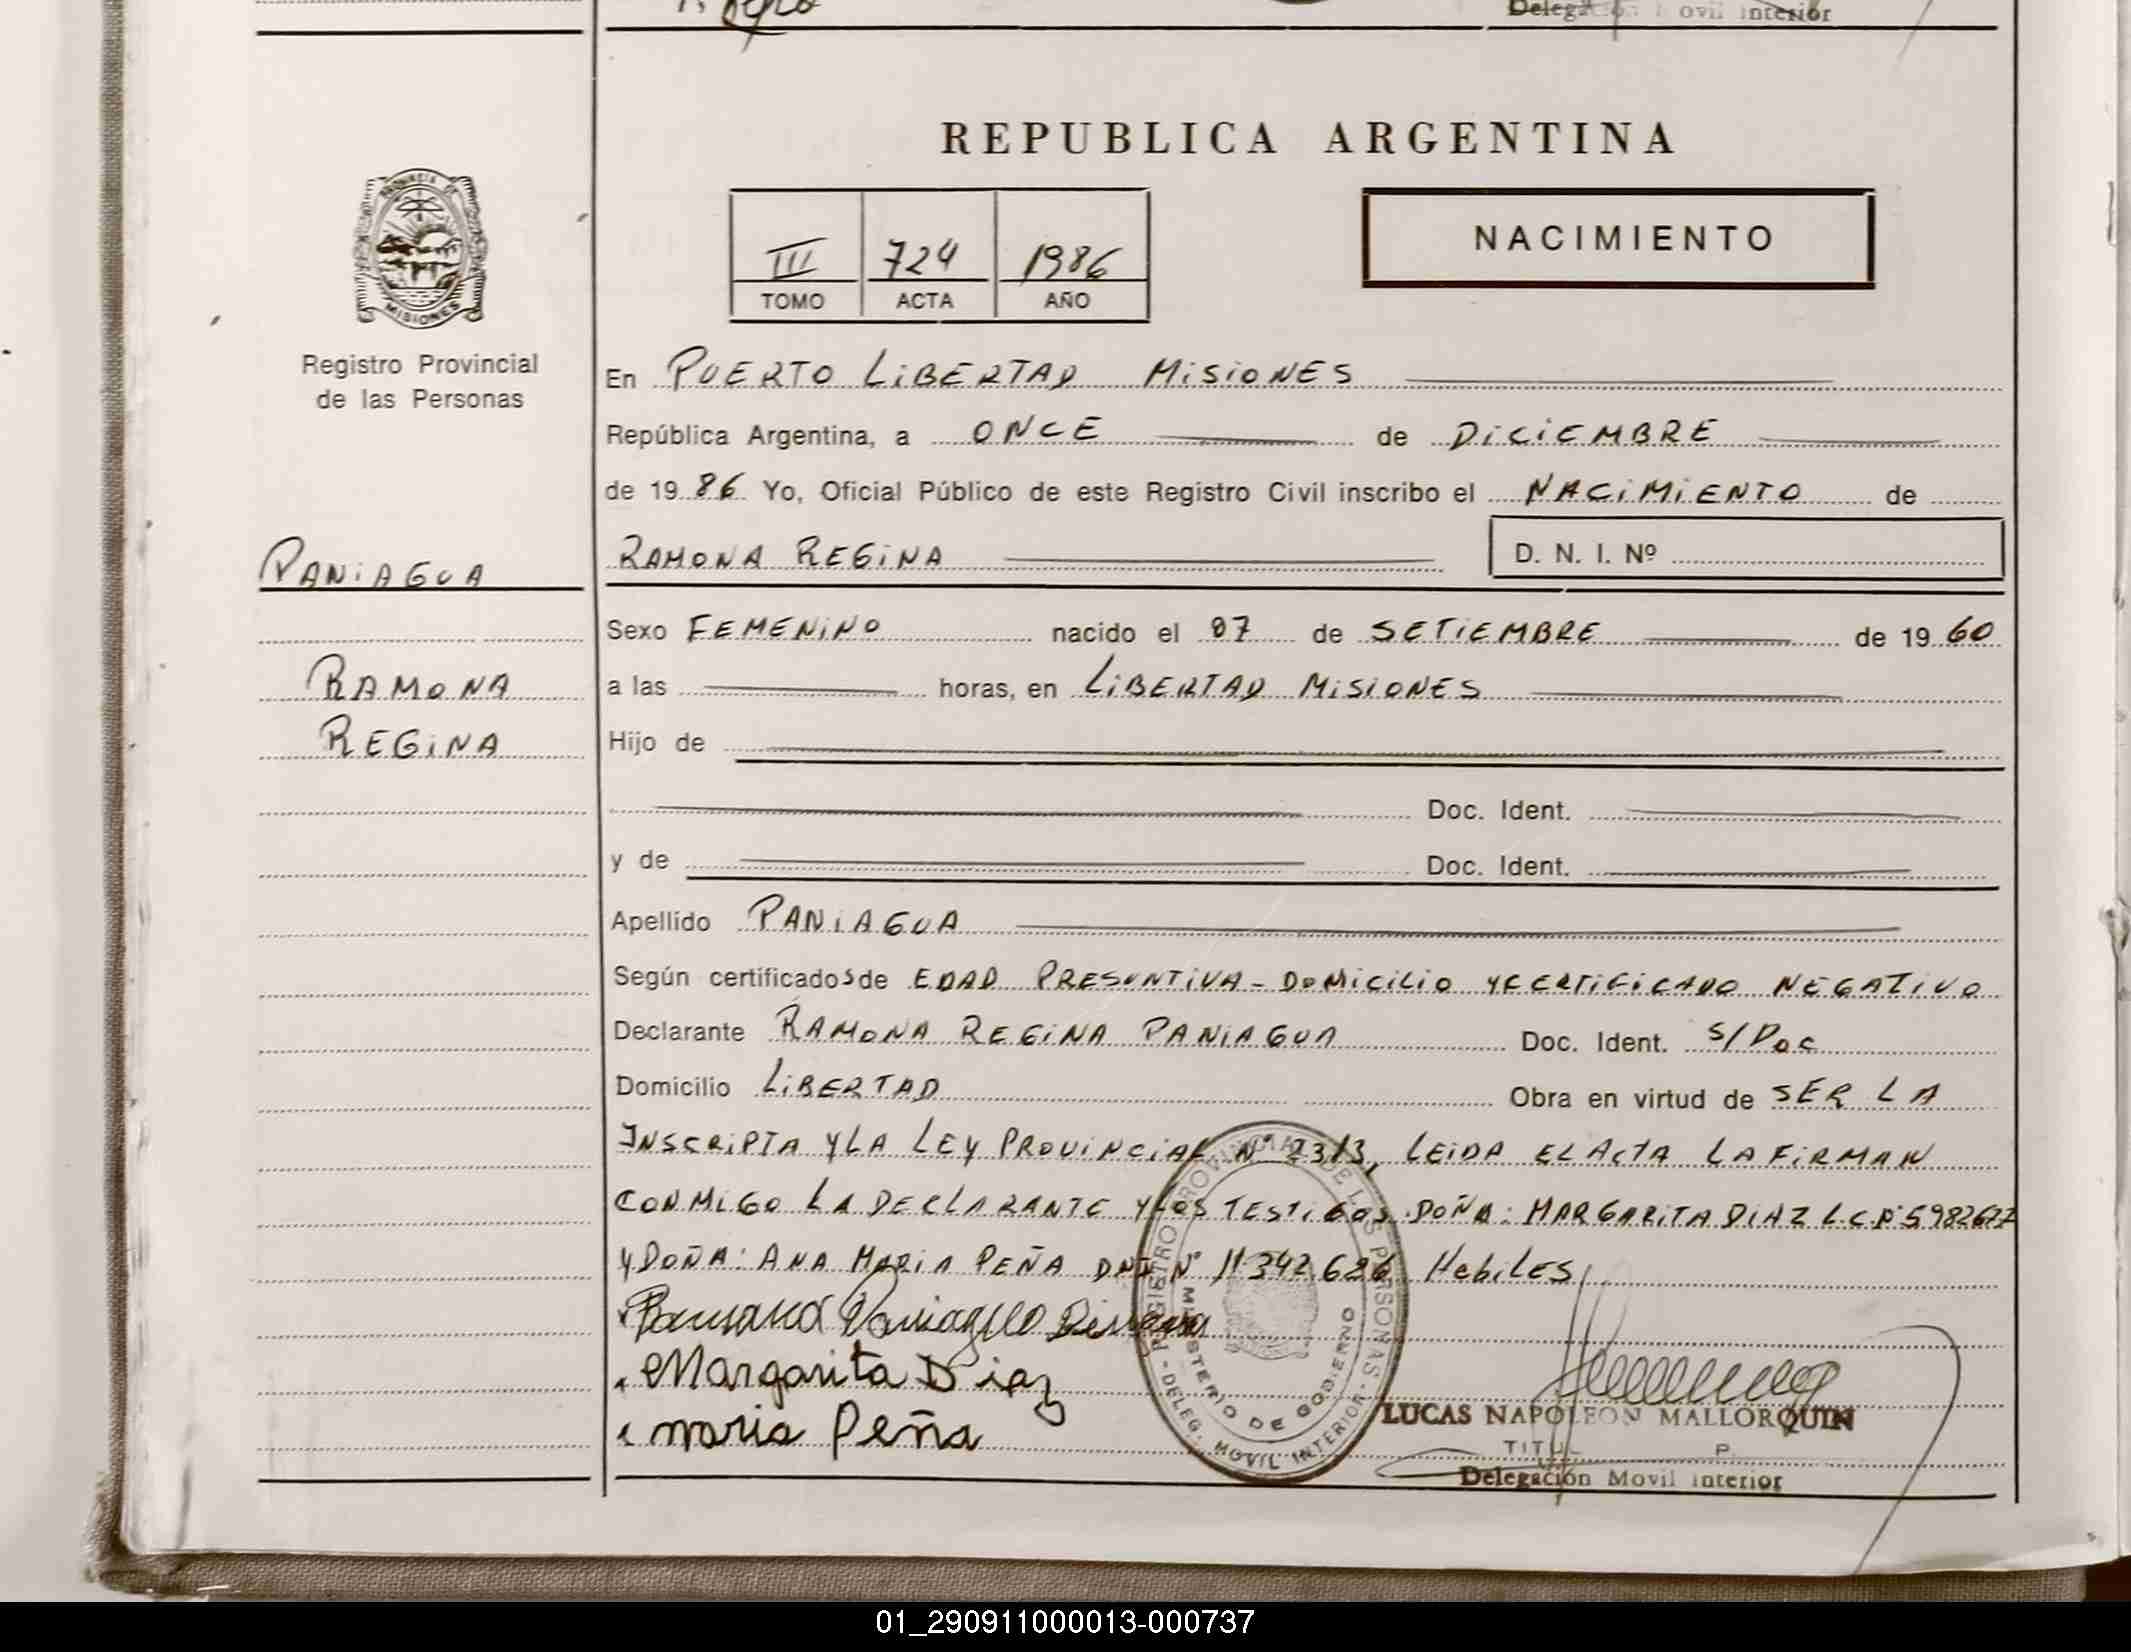 Delegación Movil interior
REPUBLICA ARGENTINA
PROVINCIA DE
MISIONES
Registro Provincial
de las Personas
III 724 1986
TOMO ACTA AÑO
NACIMIENTO
En PUERTO LIBERTAD MISIONES
República Argentina, a ONCE de DICIEMBRE
de 19 86 Yo, Oficial Público de este Registro Civil inscribo el NACIMIENTO de
PANIAGUA
RAMONA REGINA D. N. I. Nº
Sexo FEMENINO nacido el 07 de SETIEMBRE de 19 60
RAMONA
a las horas, en LIBERTAD MISIONES
REGINA
Hijo de
Doc. Ident.
y de Doc. Ident.
Apellido PANIAGUA
Según certificados de EDAD PRESUNTIVA - DOMICILIO Y CERTIFICADO NEGATIVO
Declarante RAMONA REGINA PANIAGUA Doc. Ident. S/Doc
Domicilio LIBERTAD Obra en virtud de SER LA
INSCRIPTA Y LA LEY PROVINCIAL Nº 2313, LEIDA EL ACTA LA FIRMAN
CONMIGO LA DECLARANTE Y LOS TESTIGOS DOÑA: MARGARITA DIAZ L.C.Nº
Y DOÑA: ANA MARIA PEÑA DNI Nº 11.342.686 HabiLES
Margarita Diaz
maria Peña
REGISTRO PROVINCIAL DE LAS PERSONAS - DELEG. MOVIL INTERIOR -
MINISTERIO DE GOBIERNO
LUCAS NAPOLEON MALLORQUIN
Delegación Movil interior
01_290911000013-000737